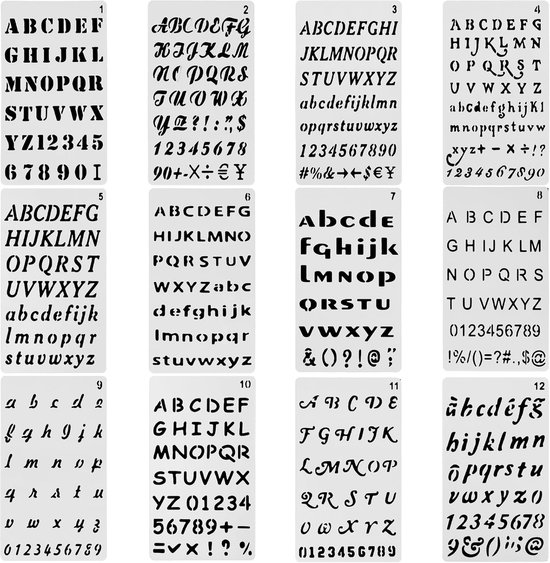 1
ABCDEF
GHIJKL
MNOPQR
STUVWX
YZ12345
678901
2
ABCDEFG
HIJKLM
NOPQRS
TUVWX
YZ?!:",$
12345678
90+-×÷€¥
3
ABCDEFGHI
JKLMNOPQR
STUVWXYZ
abcdefijklmn
opqrstuvwxyz
1234567890
#%&→←$€¥
4
ABCDEFG
HIJKLMN
OPQRST
UVWXYZ
abcdefghijkl
mnopqrstuvw
xyz+-×÷!?
1234567890
5
ABCDEFG
HIJKLMN
OPQRST
UVWXYZ
abcdefijk
lmnopqr
stuvwxyz
6
ABCDEFG
HIJKLMNO
PQRSTUV
WXYZabc
defghijk
lmnopqr
stuvwxyz
7
abcde
fghijk
lmnop
qrstu
vwxyz
&()?!@;
8
ABCDEF
GHIJKLM
NOPQRS
TUVWXYZ
0123456789
!%/()=?#.,$@
9
abcde
fghijk
lmnop
qrstu
vwxyz
0123456789
10
ABCDEF
GHIJKL
MNOPQR
STUVWX
YZ01234
56789+-
=✓×!?%
11
ABCDE
FGHIJK
LMNOP
QRSTU
VWXYZ
0123456789
12
abcdefg
hijklmn
opqrstu
vwxyz0
12345678
9&@();